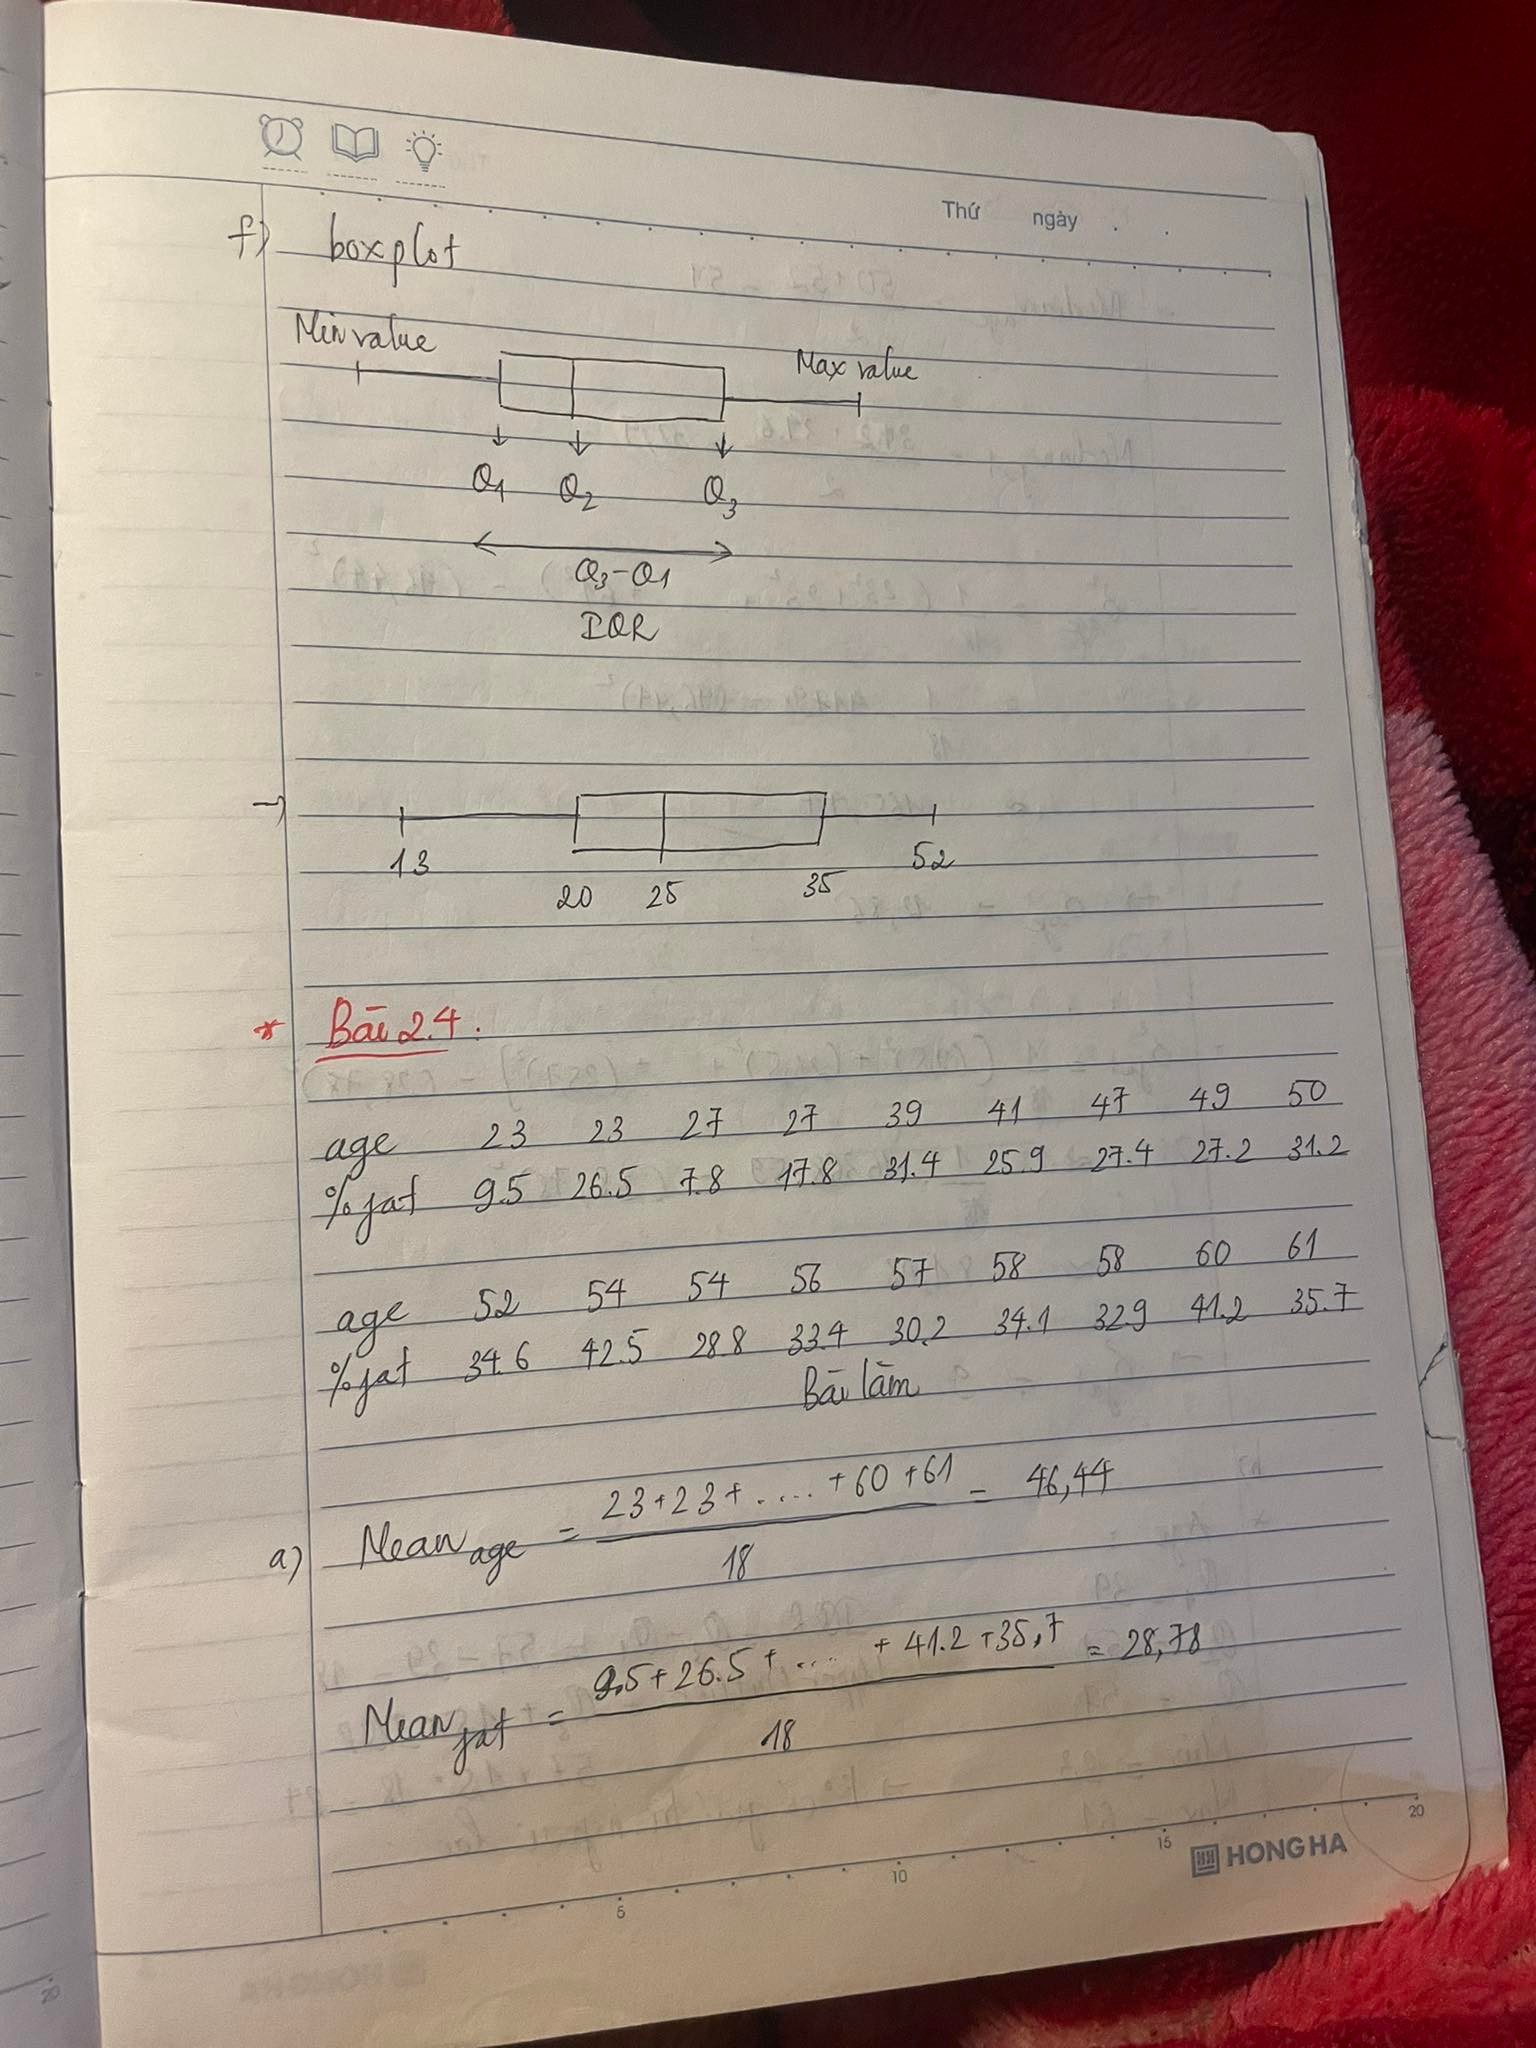 Thứ ngày
f) boxplot
Min value
Max value
Q1 Q2 Q3
Q3-Q1
IQR
13 20 25 35 52
* Bài 2.4:
age 23 23 27 27 39 41 47 49 50
%fat 9.5 26.5 7.8 17.8 31.4 25.9 27.4 27.2 31.2
age 52 54 54 56 57 58 58 60 61
%fat 34.6 42.5 28.8 33.4 30.2 34.1 32.9 41.2 35.7
Bài làm
a) Mean age = 23+23+....+60+61 / 18 = 46,44
Mean fat = 9.5+26.5+....+41.2+35,7 / 18 = 28,78
5 10 15 20
HONG HA